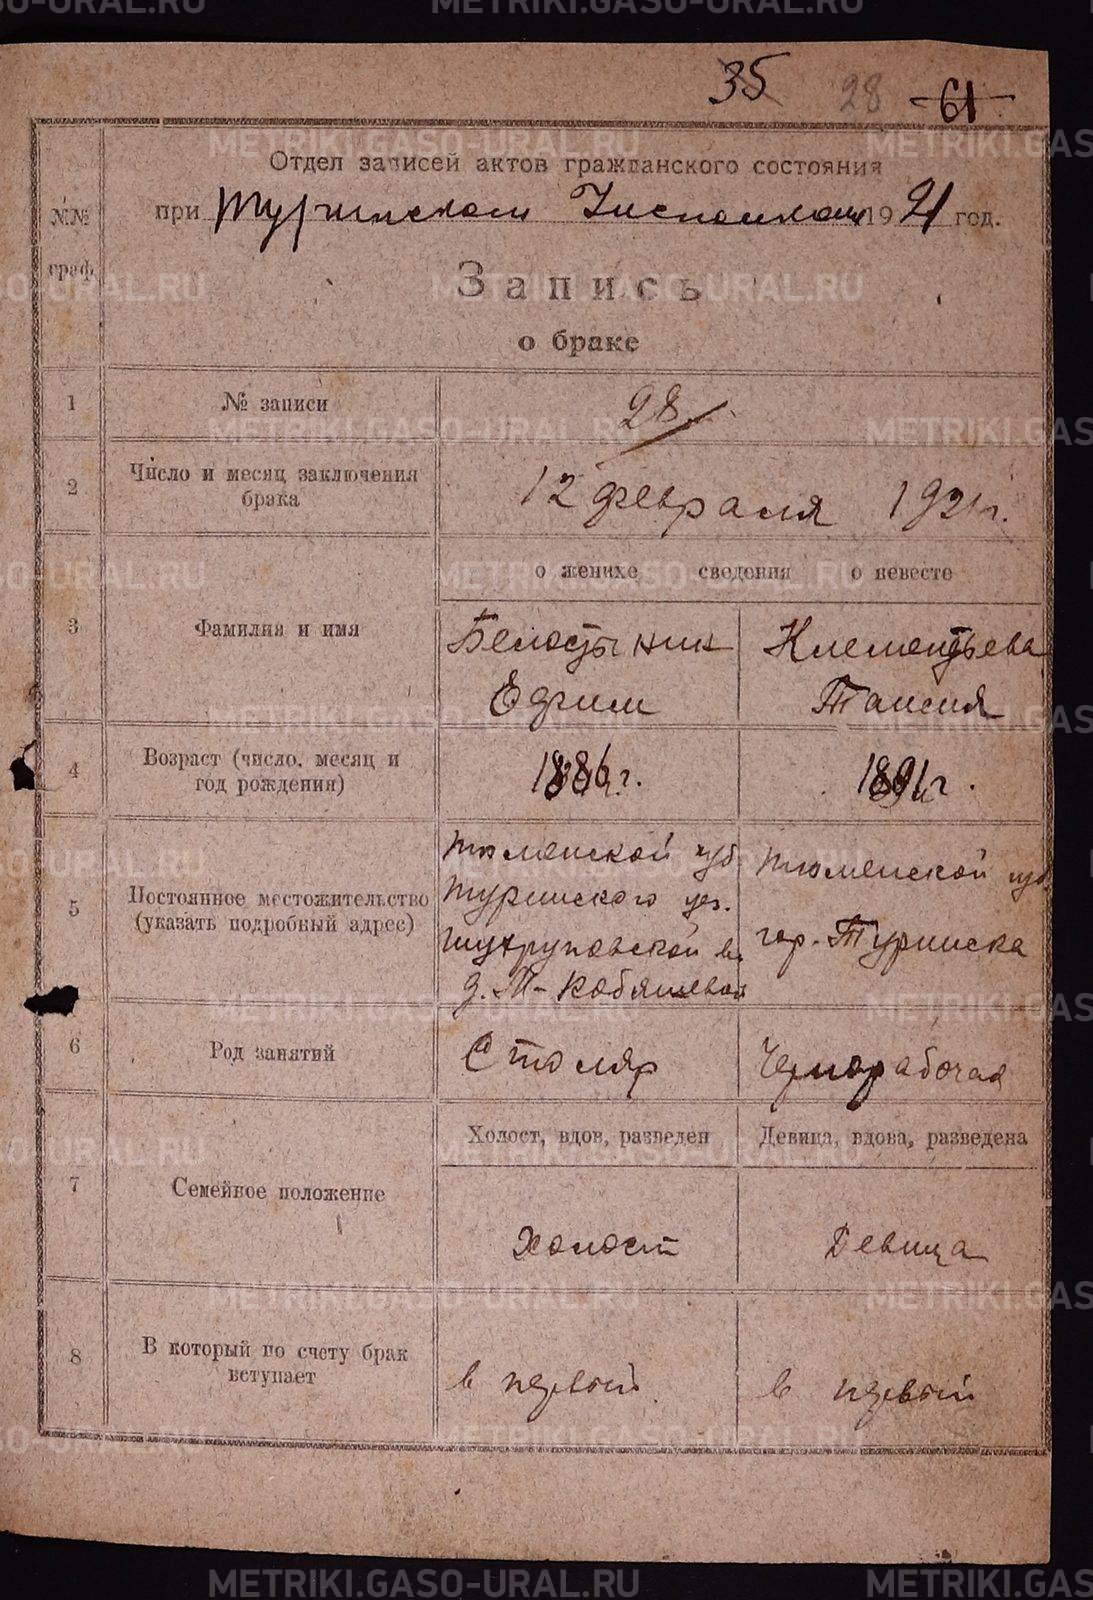 METRIKI.GASO-URAL.RU
35 28 61
Отдел записей актов гражданского состояния
при Туринском Исполкоме 1921 год.
№№ граф
Запись
о браке
1 № записи 28
2 Число и месяц заключения
брака
12 февраля 1921 г.
о женихе сведения о невесте
3 Фамилия и имя
Клементьева
Ефим Таисия
4 Возраст (число, месяц и
год рождения)
1886 г. 1891 г.
5 Постоянное местожительство
(указать подробный адрес)
Тюменской губ
Туринского уез.
в.
д.
Тюменской губ
гор. Туринска
6 Род занятий
Столяр Чернорабочая
Холост, вдов, разведен Девица, вдова, разведена
7 Семейное положение
Холост Девица
8 В который по счету брак
вступает
в первый в первый